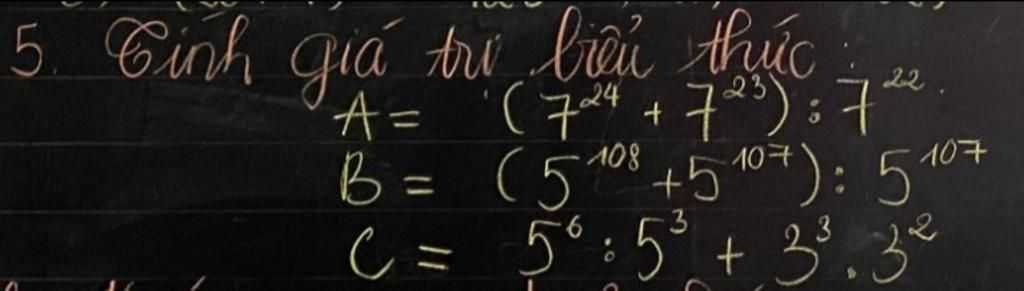 5. Tính giá trị biểu thức:
A = (7²⁴ + 7²³) : 7²².
B = (5¹⁰⁸ + 5¹⁰⁷) : 5¹⁰⁷
C = 5⁶ : 5³ + 3³ . 3²